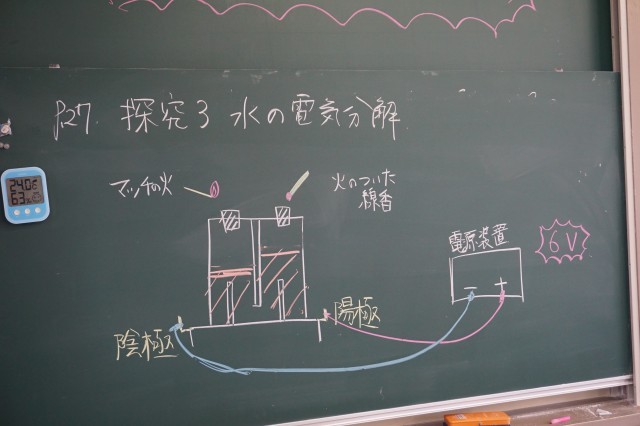 p27. 探究3 水の電気分解
マッチの火
火のついた
線香
電源装置
6V
− +
陰極
陽極
24.0
63